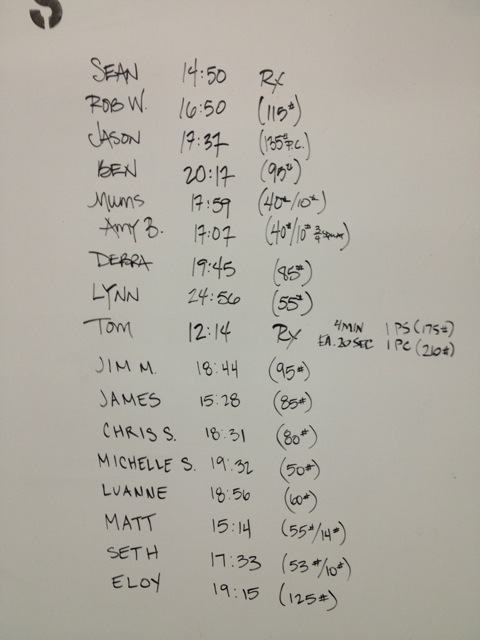 S
SEAN 14:50 Rx
ROB W. 16:50 (115#)
JASON 17:37 (135# P.C.)
BEN 20:17 (95#)
Mums 17:59 (40#/10#)
AMY B. 17:07 (40#/10# 3/4
DEBRA 19:45 (85#)
LYNN 24:56 (55#)
TOM 12:14 Rx 4 MIN 1 PS (175#)
EA. 20 SEC 1 PC (210#)
JIM M. 18:44 (95#)
JAMES 15:28 (85#)
CHRIS S. 18:31 (80#)
MICHELLE S. 19:32 (50#)
LUANNE 18:56 (60#)
MATT 15:14 (55#/14#)
SETH 17:33 (53#/10#)
ELOY 19:15 (125#)